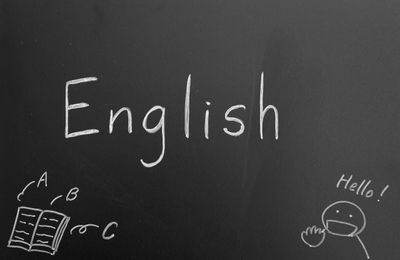 English
Hello!
A
B
C